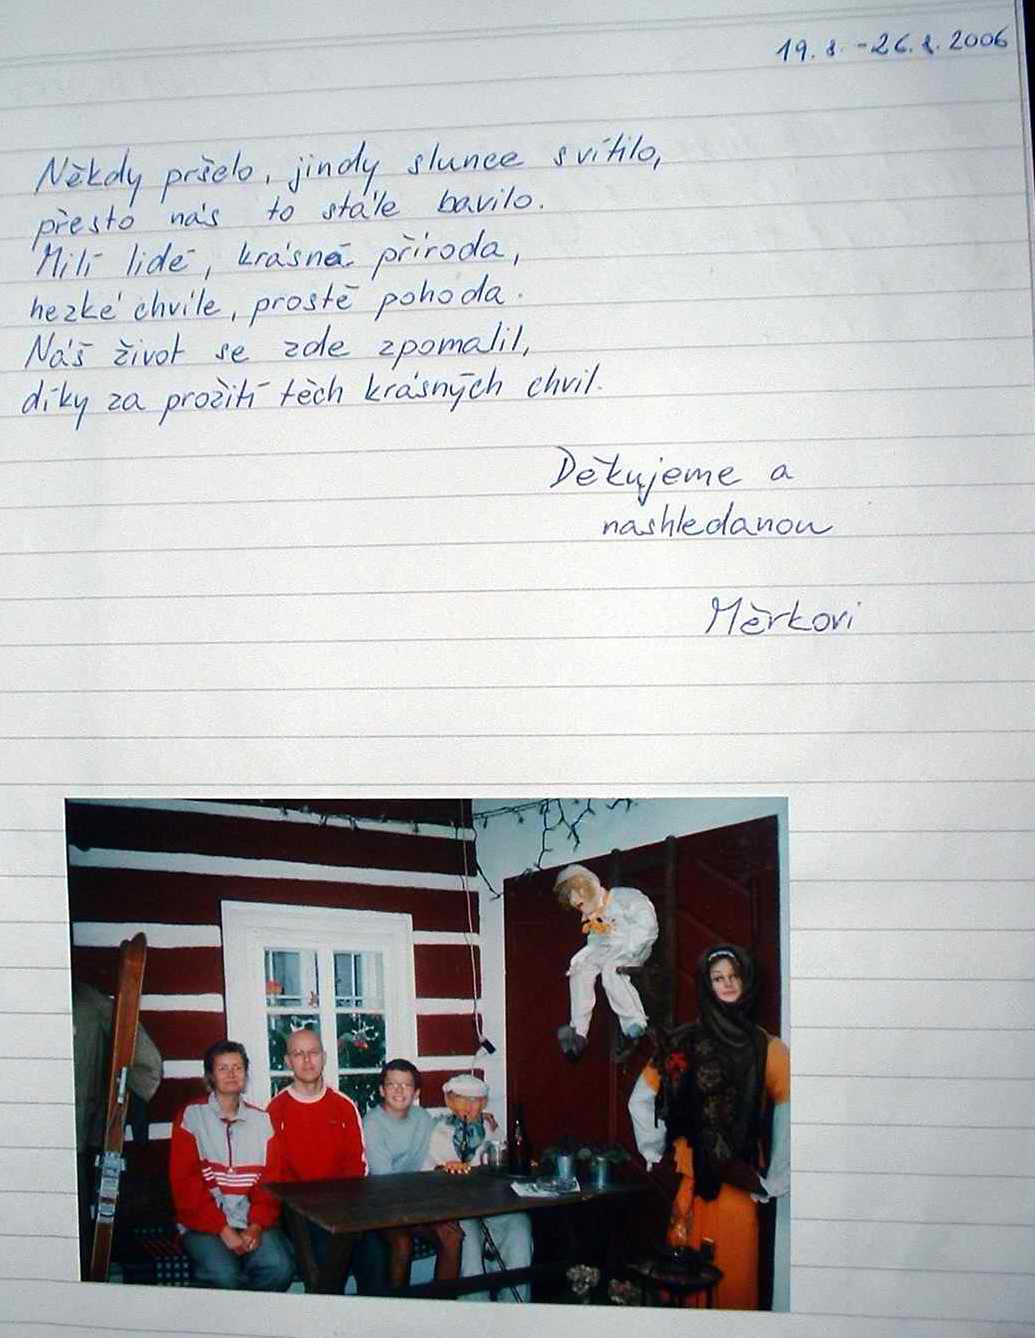 19. 8. - 26. 8. 2006
Někdy pršelo, jindy slunce svítilo,
přesto nás to stále bavilo.
Milí lidé, krásná příroda,
hezké chvíle, prostě pohoda.
Náš život se zde zpomalil,
díky za prožití těch krásných chvil.
Děkujeme a
nashledanou
Měrkovi